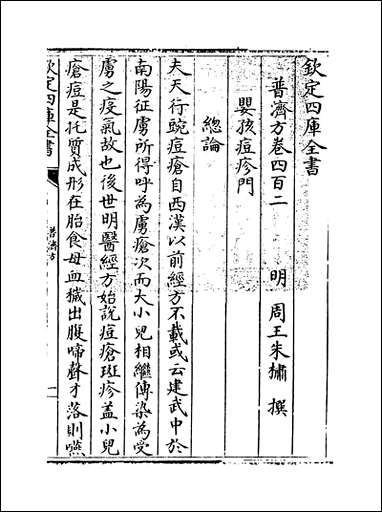 欽定四庫全書
普濟方卷四百二
明 周王朱橚 撰
嬰孩痘疹門
總論
夫天行豌痘瘡自西漢以前經方不載或云建武中於
南陽征虜所得呼為虜瘡次而大小兒相繼傳染為受
虜之疫氣故也後世明醫經方始說痘瘡斑疹盖小兒
瘡痘是托質成形在胎食母血穢出腹啼聲才落則嚥
欽定四庫全書
普濟方
一